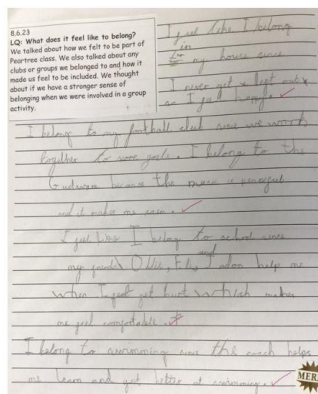 8.6.23
LQ: What does it feel like to belong?
We talked about how we felt to be part of
Peartree class. We also talked about any
clubs or groups we belonged to and how it
made us feel to be included. We thought
about if we have a stronger sense of
belonging when we were involved in a group
activity.
I feel like I belong
in
to my house since
I never get left out
so I feel happy.
I belong to my football club since we work
together to score goals. I belong to the
Gudwara because the music is peaceful
and it makes me calm.
I feel like I belong to school since
my friends and help me
when I feel get hurt which makes
me feel comfortable.
I belong to swimming since the coach helps
me learn and get better at swimming.
MER